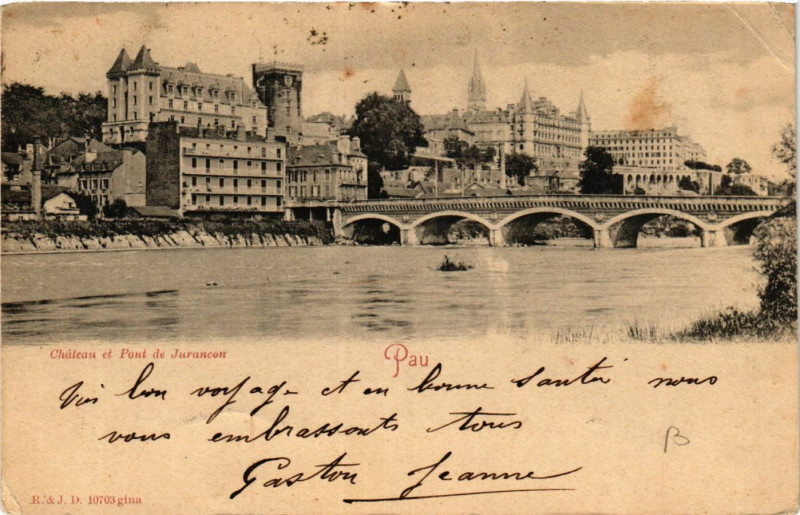 Château et Pont de Jurancon
Pau
Très bon voyage et en bonne santé nous
vous embrassons tous
Gaston Jeanne
B
R. & J. D. 10703 gina